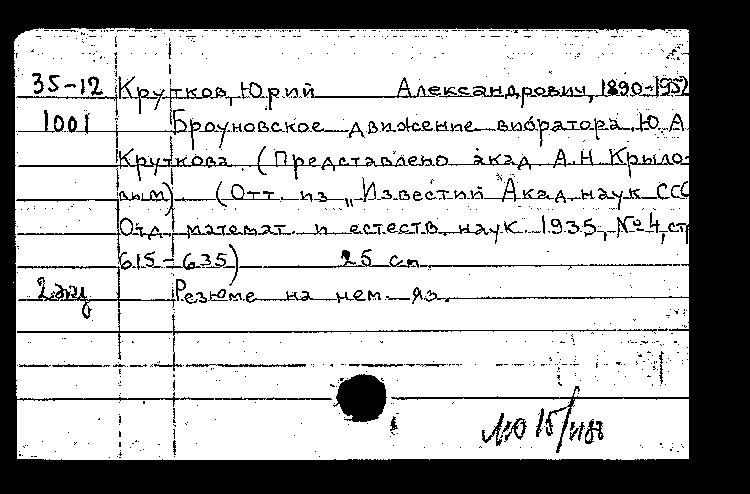 35-12 Крутков, Юрий Александрович, 1890-1952
1001 Броуновское движение вибратора Ю.А.
Круткова. (Представлено акад А.Н Крыло-
вым). (Отт. из „Известий Акад. наук ССС
Отд. математ. и естеств. наук. 1935, № 4, стр
615-635) 25 cm
2 экз Резюме на нем. яз.
МЮ 15/